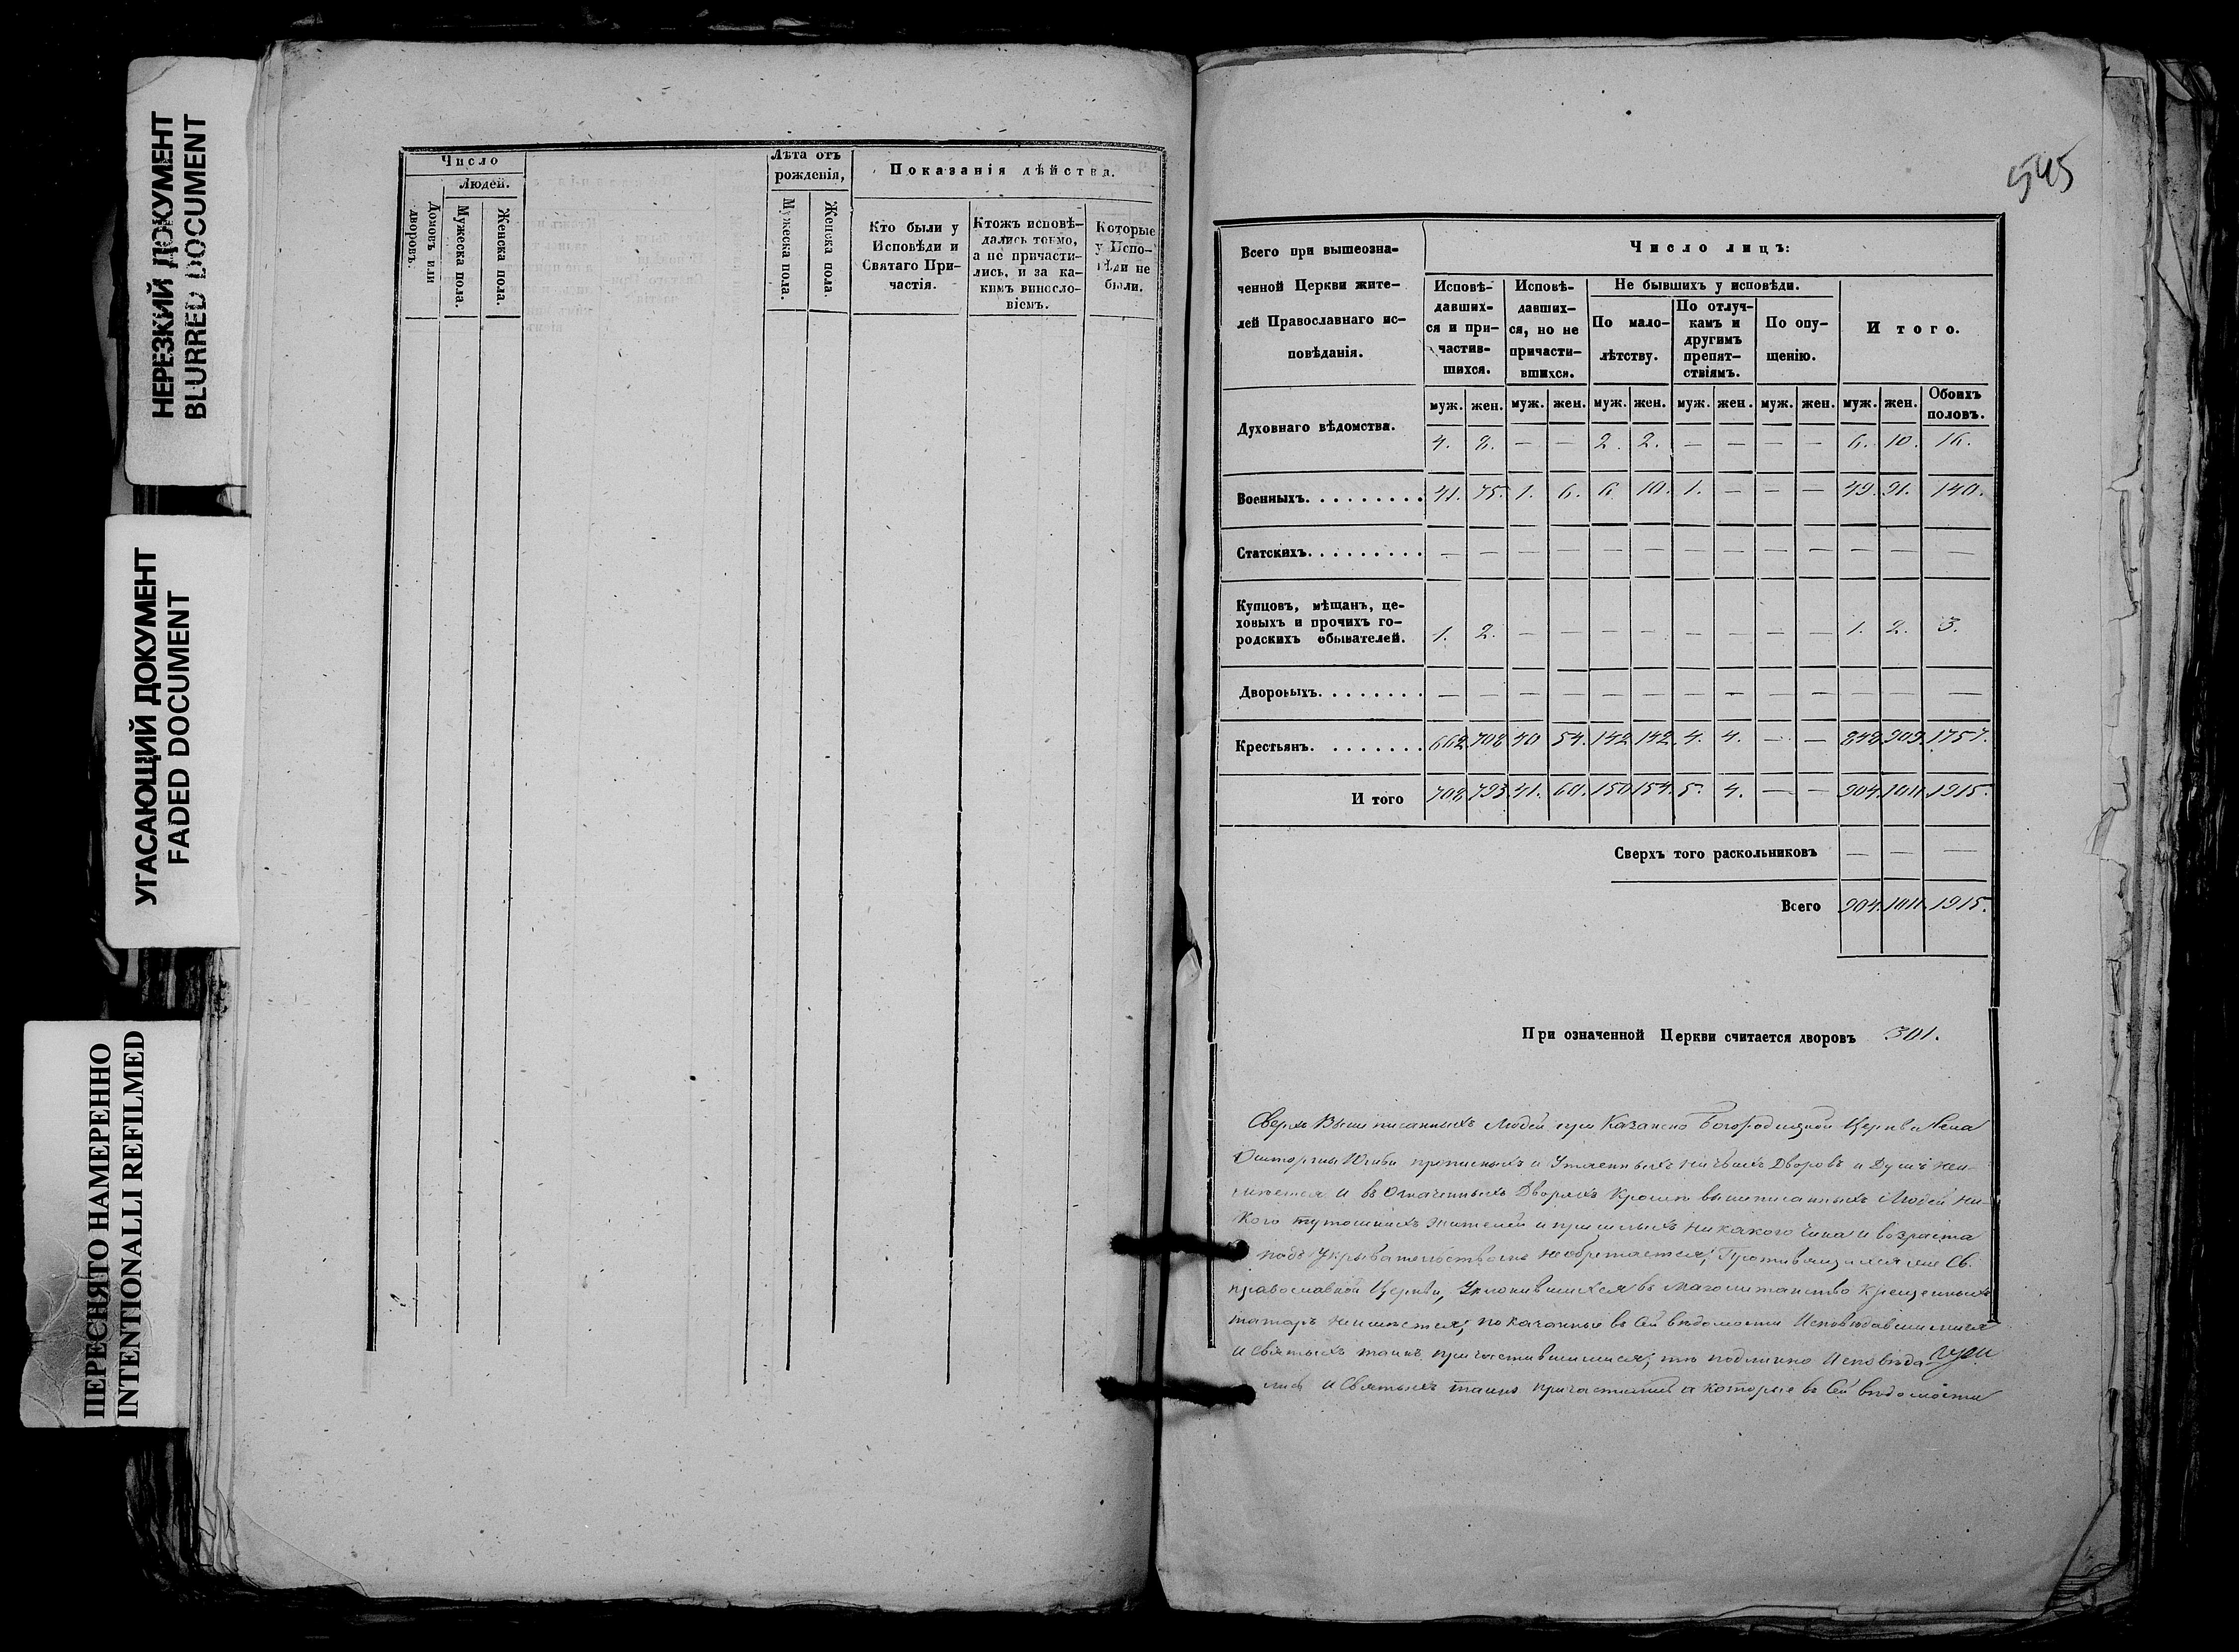 НЕРЕЗКИЙ ДОКУМЕНТ
BLURRED DOCUMENT
УГАСАЮЩИЙ ДОКУМЕНТ
FADED DOCUMENT
ПЕРЕСНЯТО НАМЕРЕННО
INTENTIONALLI REFILMED
Число
Людей.
Домовъ или дворовъ.
Мужеска пола.
Женска пола.
Лѣта отъ
рожденія,
Мужеска пола.
Женска пола.
Показанія дѣйства.
Кто были у
Исповѣди и
Святаго При-
частія.
Ктожъ исповѣ-
дались токмо,
а не причасти-
лись, и за ка-
кимъ винсло-
віемъ.
Которые
у Испо-
вѣди не
были.
545
Всего при вышеозна-
ченной Церкви жите-
лей Православнаго ис-
повѣданія.
Число лицъ:
Исповѣ-
давших-
ся и при-
частив-
шихся.
Исповѣ-
давших-
ся, но не
причасти-
вшихся.
Не бывшихъ у исповѣди.
По мало-
лѣтству.
По отлуч-
камъ и
другимъ
препят-
ствіямъ.
По опу-
щенію.
Итого.
муж. жен. муж. жен. муж. жен. муж. жен. муж. жен. муж. жен. Обоихъ половъ.
Духовнаго вѣдомства. 4. 8. — — 2. 2. — — — — 6. 10. 16.
Военныхъ. 41. 75. 1. 6. 6 10. 1. — — — 49. 91. 140.
Статскихъ. — — — — — — — — — — — —
Купцовъ, мѣщанъ, це-
ховыхъ и прочихъ го-
родскихъ обывателей. 1. 2. — — — — — — — — 1. 2. 3.
Дворовыхъ. — — — — — — — — — — — — —
Крестьянъ. 662 708 40 54. 142 142. 4. 4. — — 848 909. 1757.
И того 708 793. 41. 60. 150 154. 5. 4. — — 904. 1011. 1915.
Сверхъ того раскольниковъ — — —
Всего 904. 1011. 1915.
При означенной Церкви считается дворовъ 301.
Сверхъ Выше писанныхъ Людей при Казанско Богородицкой Церкви Села
прописныхъ и Утаенныхъ ничьихъ Дворовъ и Душъ неи-
мѣется и въ Означенныхъ Дворахъ Кромѣ вышеписанныхъ Людей ни-
кого тутошнихъ жителей и пришлыхъ никакого чина и возраста
подъ Укрывательствомъ необретается; Противящихся Св.
православной Церкви, Уклонившихся въ магометанство Крещенныхъ
татаръ неимѣется; показанные въ Сей вѣдомости Исповѣдавшимися
и святыхъ таинъ причастившимися, тѣ подлинно Исповѣда-
лись и Святыхъ таинъ причастились а которые въ Сей вѣдомости